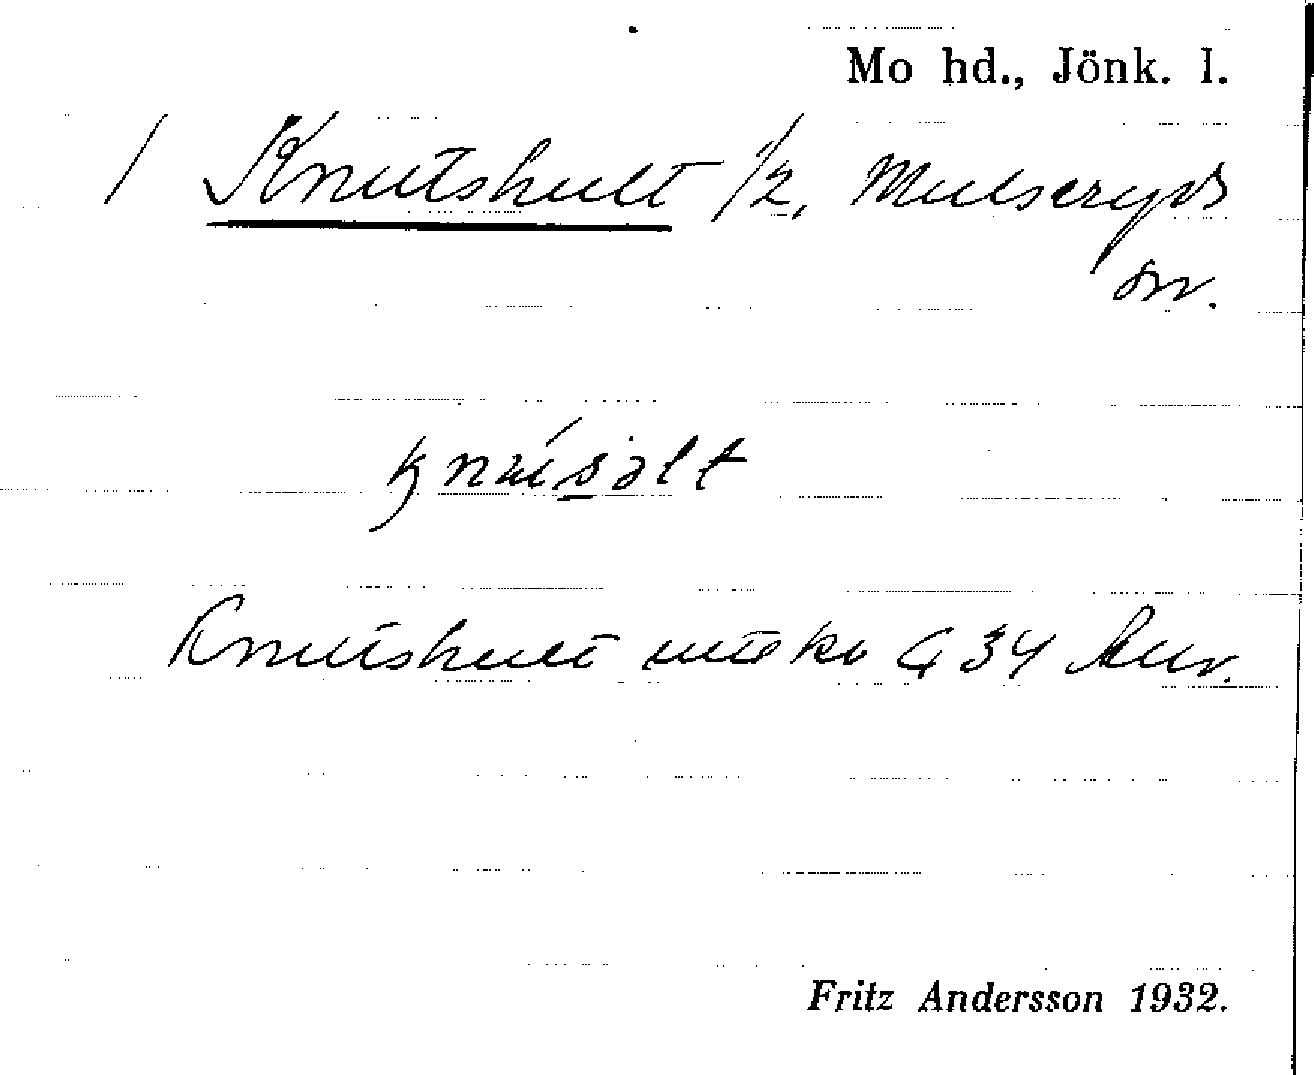 Mo hd., Jönk. l.
/ Knutshult 1/2, Mulseryds
sn.
Knutshult utsko G 34 Auv.
Fritz Andersson 1932.